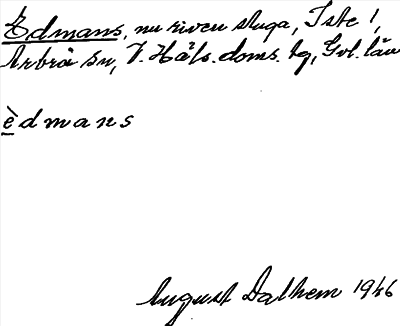 Edmans, nu riven stuga, Iste 1,
Arbrå sn, V. Häls. doms. tg, Gvl. län
èdmans
August Dalhem 1946